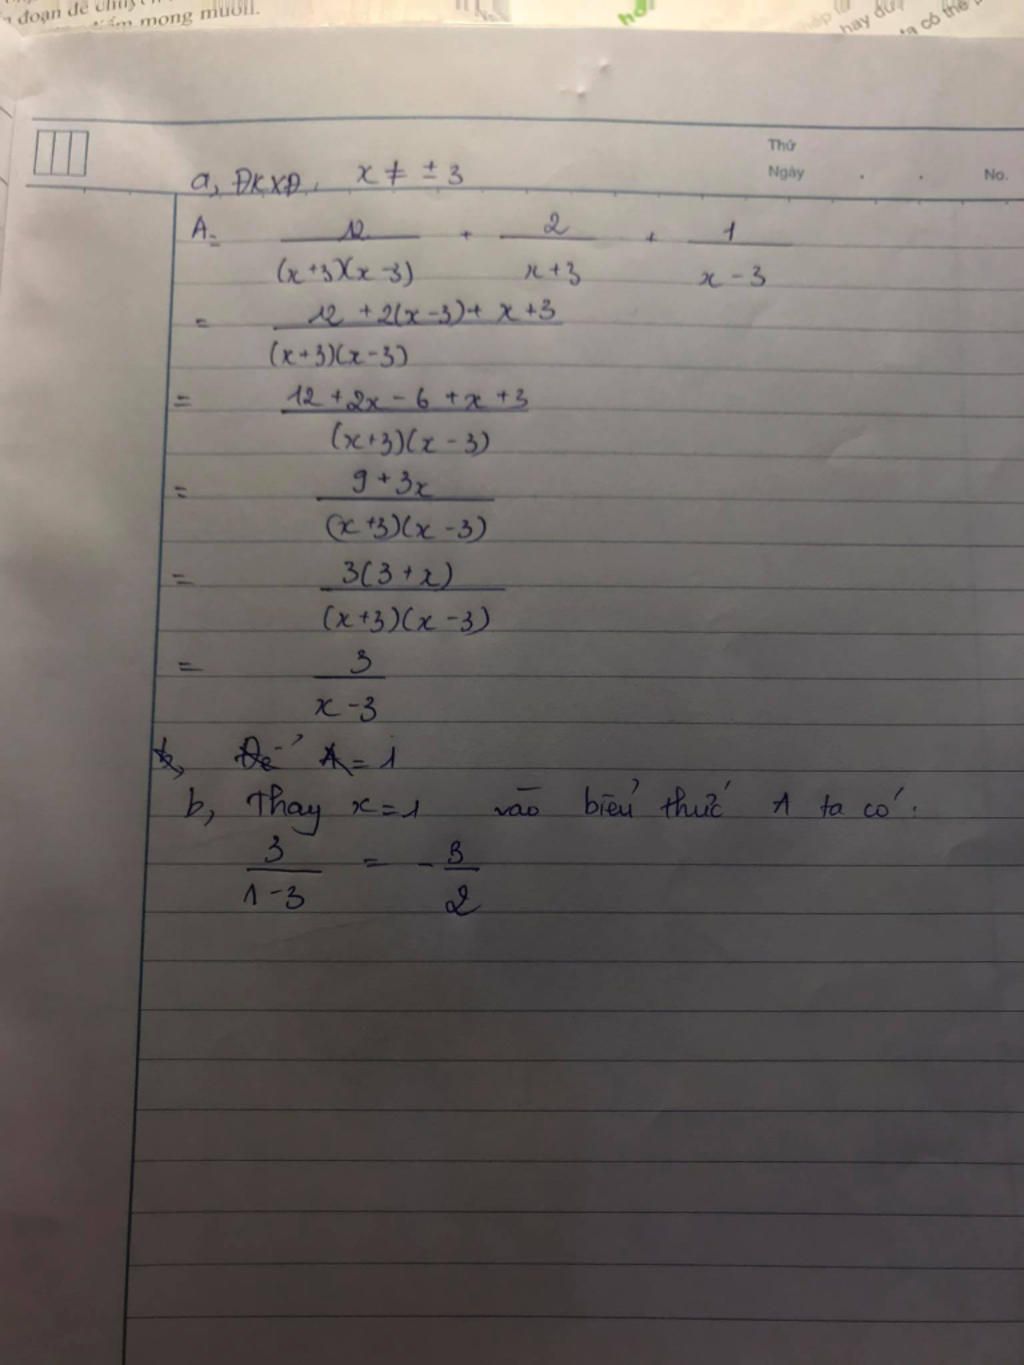 đoạn để
mong muốn.
hay
ta có thể
Thứ
Ngày
No.
a, ĐKXĐ: x ≠ ± 3
A = 12/((x+3)(x-3)) + 2/(x+3) + 1/(x-3)
= (12 + 2(x-3) + x+3)/((x+3)(x-3))
= (12 + 2x - 6 + x + 3)/((x+3)(x-3))
= (9 + 3x)/((x+3)(x-3))
= (3(3+x))/((x+3)(x-3))
= 3/(x-3)
b, Để A = 1
b, Thay x = 1 vào biểu thức A ta có:
3/(1-3) = -3/2